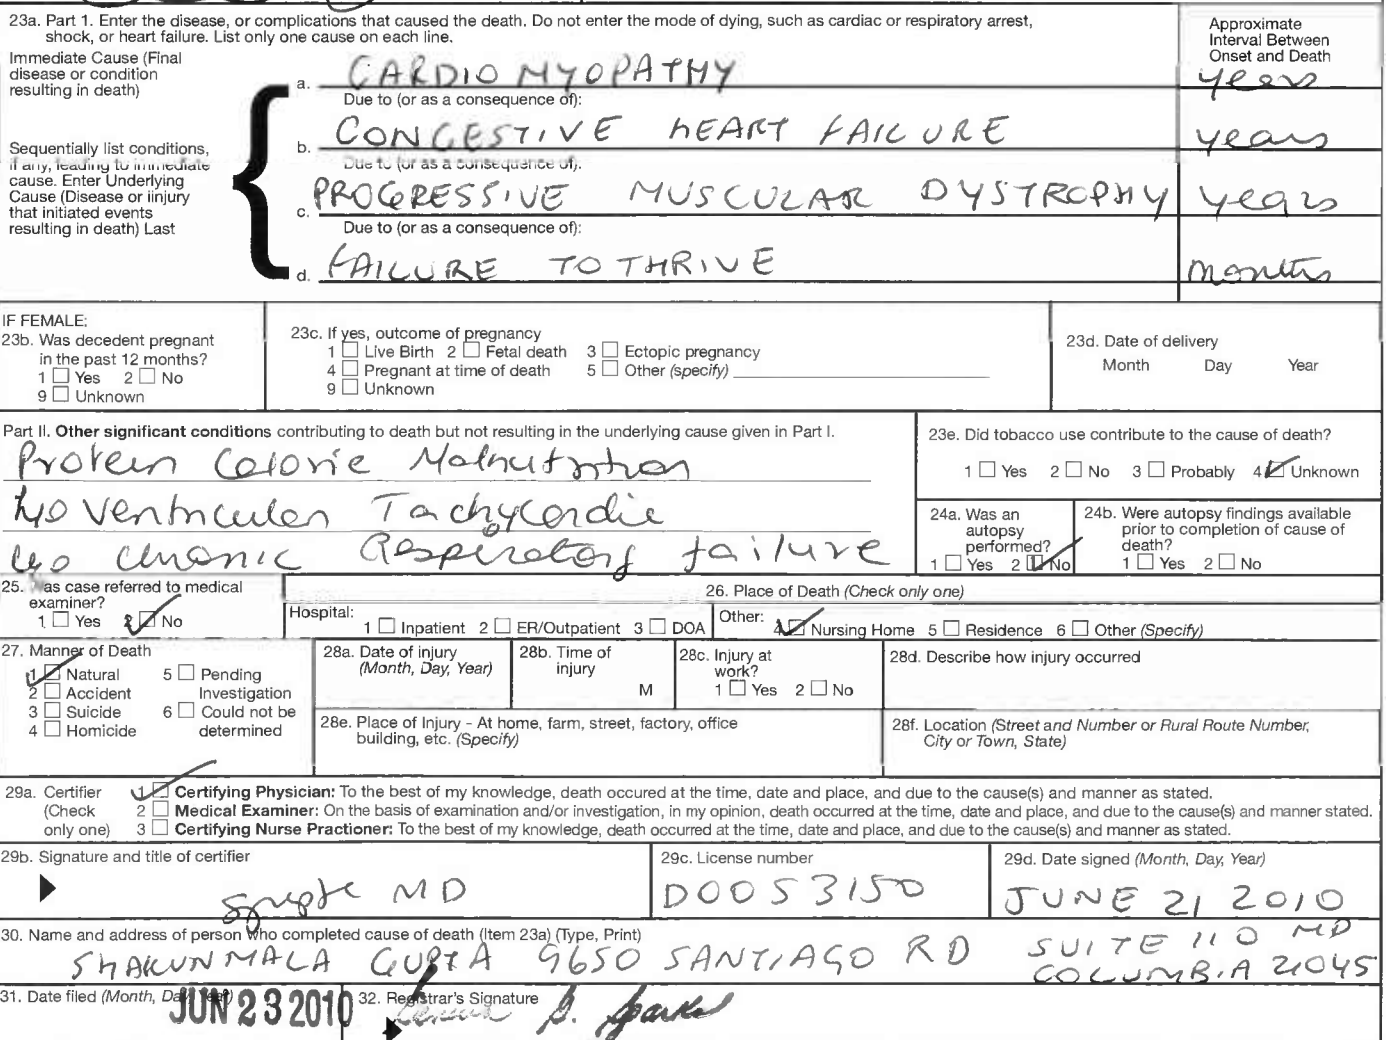 23a. Part 1. Enter the disease, or complications that caused the death. Do not enter the mode of dying, such as cardiac or respiratory arrest,
shock, or heart failure. List only one cause on each line.
Approximate
Interval Between
Onset and Death
Immediate Cause (Final
disease or condition
resulting in death)
a. CARDIOMYOPATHY years
Due to (or as a consequence of):
b. CONGESTIVE HEART FAILURE years
Sequentially list conditions,
if any, leading to immediate
cause. Enter Underlying
Cause (Disease or iinjury
that initiated events
resulting in death) Last
Due to (or as a consequence of):
c. PROGRESSIVE MUSCULAR DYSTROPHY years
Due to (or as a consequence of):
d. FAILURE TO THRIVE months
IF FEMALE:
23b. Was decedent pregnant
in the past 12 months?
1 Yes 2 No
9 Unknown
23c. If yes, outcome of pregnancy
1 Live Birth 2 Fetal death 3 Ectopic pregnancy
4 Pregnant at time of death 5 Other (specify)
9 Unknown
23d. Date of delivery
Month Day Year
Part II. Other significant conditions contributing to death but not resulting in the underlying cause given in Part I.
Protein Calorie Malnutrition
h/o Ventricular Tachycardia
Chronic Respiratory failure
23e. Did tobacco use contribute to the cause of death?
1 Yes 2 No 3 Probably 4 Unknown
24a. Was an
autopsy
performed?
1 Yes 2 No
24b. Were autopsy findings available
prior to completion of cause of
death?
1 Yes 2 No
25. Was case referred to medical
examiner?
1 Yes 2 No
26. Place of Death (Check only one)
Hospital:
1 Inpatient 2 ER/Outpatient 3 DOA
Other:
4 Nursing Home 5 Residence 6 Other (Specify)
27. Manner of Death
1 Natural 5 Pending
2 Accident Investigation
3 Suicide 6 Could not be
4 Homicide determined
28a. Date of injury
(Month, Day, Year)
28b. Time of
injury
M
28c. Injury at
work?
1 Yes 2 No
28d. Describe how injury occurred
28e. Place of Injury - At home, farm, street, factory, office
building, etc. (Specify)
28f. Location (Street and Number or Rural Route Number,
City or Town, State)
29a. Certifier
(Check
only one)
1 Certifying Physician: To the best of my knowledge, death occured at the time, date and place, and due to the cause(s) and manner as stated.
2 Medical Examiner: On the basis of examination and/or investigation, in my opinion, death occurred at the time, date and place, and due to the cause(s) and manner stated.
3 Certifying Nurse Practioner: To the best of my knowledge, death occurred at the time, date and place, and due to the cause(s) and manner as stated.
29b. Signature and title of certifier
MD
29c. License number
D0053150
29d. Date signed (Month, Day, Year)
JUNE 21 2010
30. Name and address of person who completed cause of death (Item 23a) (Type, Print)
SHAKUNMALA GUPTA 9650 SANTIAGO RD SUITE 110 MD
COLUMBIA 21045
31. Date filed (Month, Day, Year)
JUN 23 2010
32. Registrar's Signature